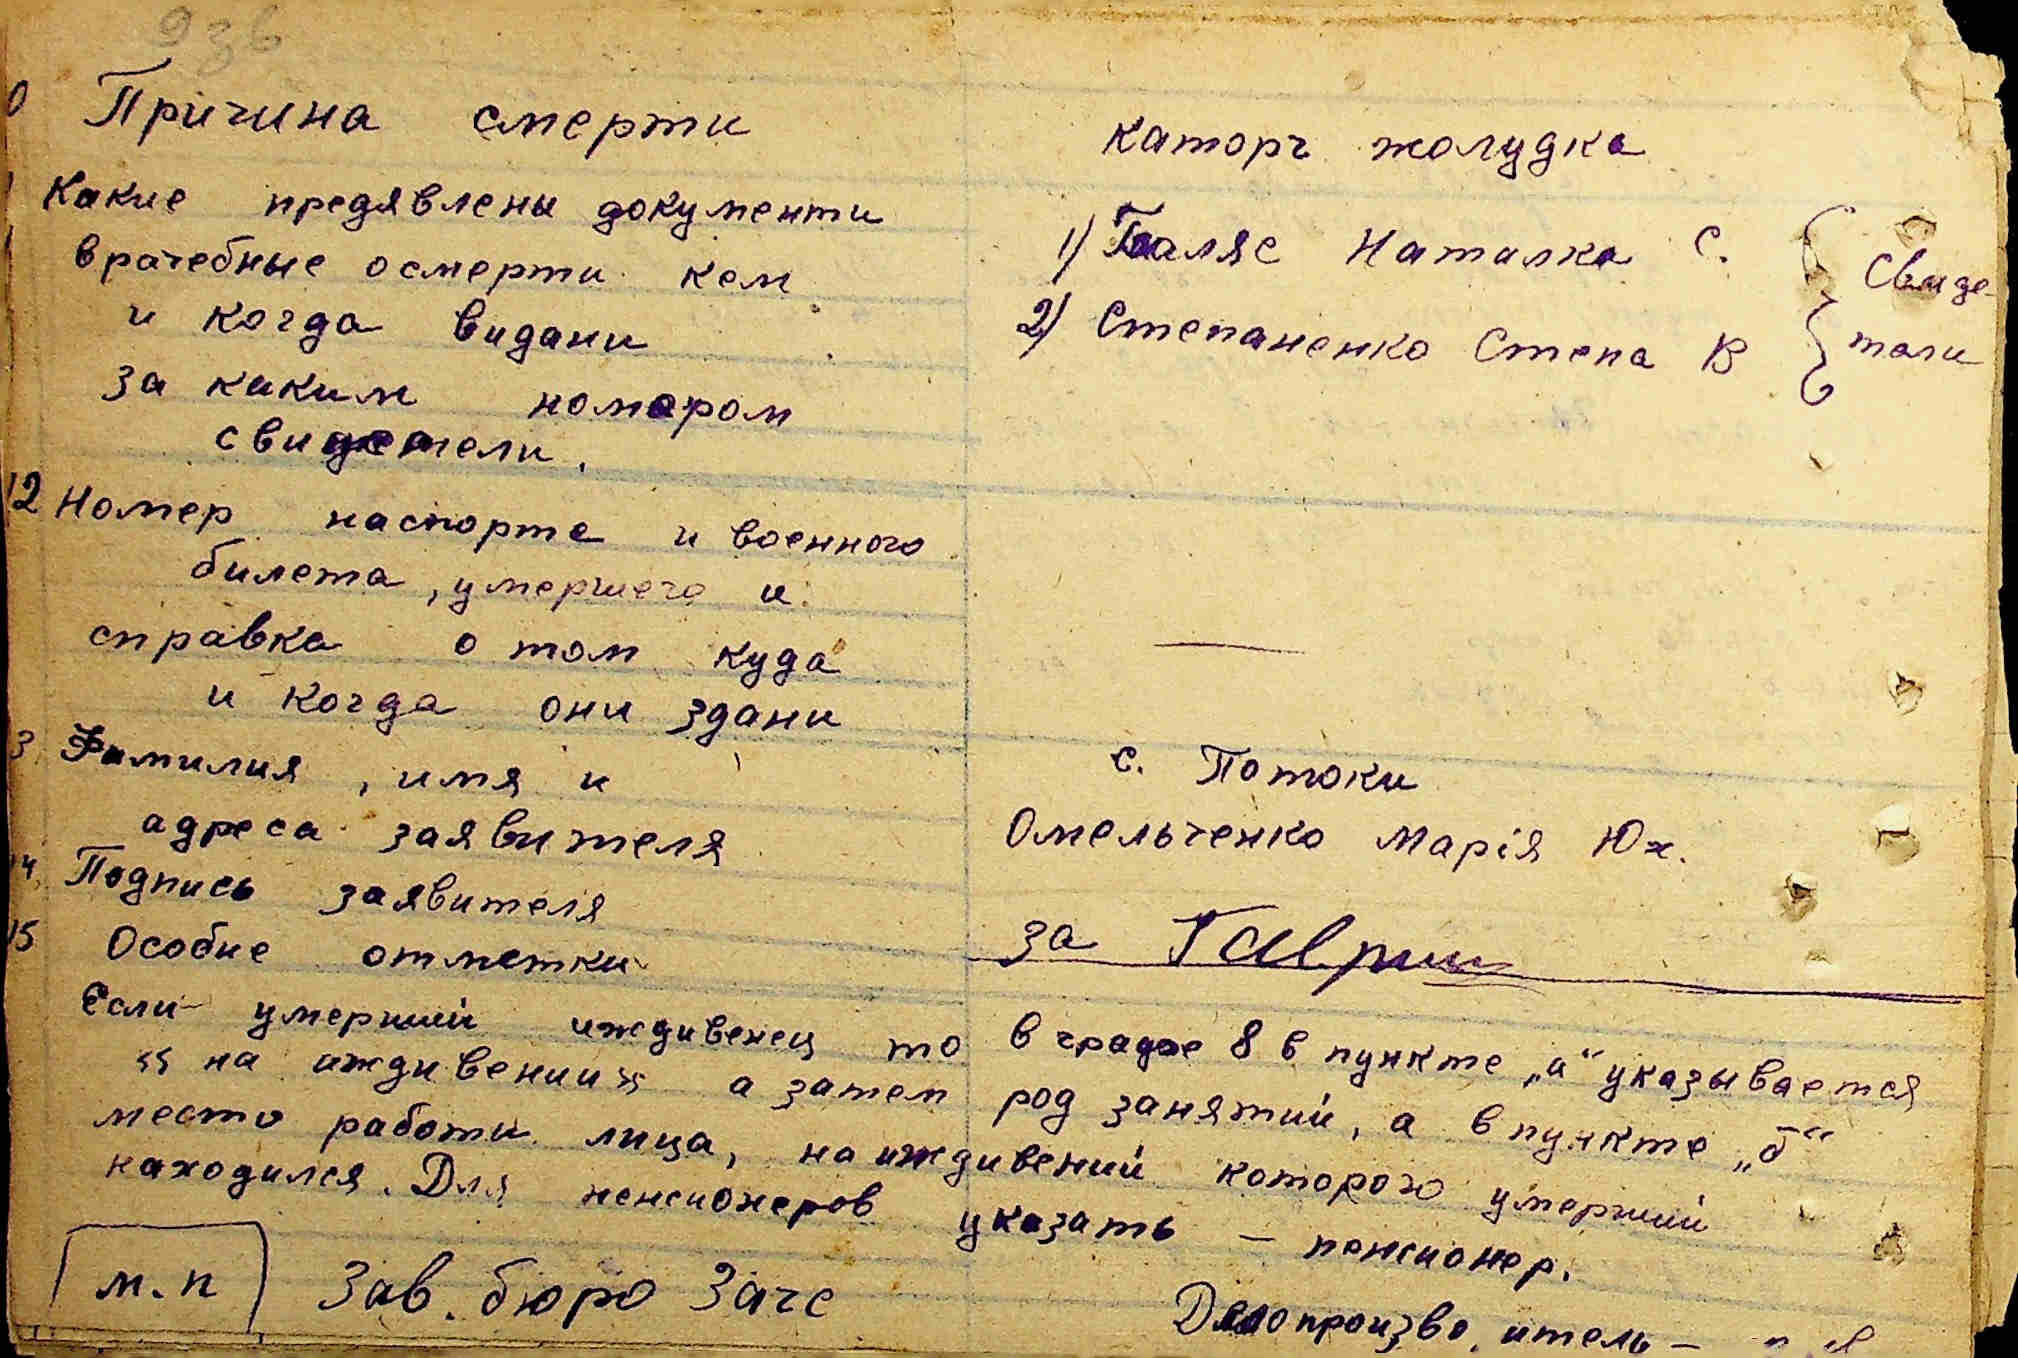 936
0 Причина смерти
Каторг жолудка
Какие предявлены документи
врачебные осмерти кем
и когда видани
за каким номером
свидетели.
1) Галяс Наталка С.
2) Степаненко Степа В
Свиде-
тели
12 Номер паспорта и военного
билета, умершего и
справка о том куда
и когда они здани
—
3 Фамилия, имя и
адреса заявителя
с. Потоки
Омельченко Марія Юх.
14 Подпись заявителя
за Гавриш
15 Особие отметки
Если умерший иждивенец то в градое 8 в пункте „а“ указывается
«на иждивении» а затем род занятий, а в пункте „б“
место работи лица, на иждивений которого умерший
находился. Для пенсионеров указать – пенсионер.
м.п Зав. бюро Загс
Делопроизво итель –